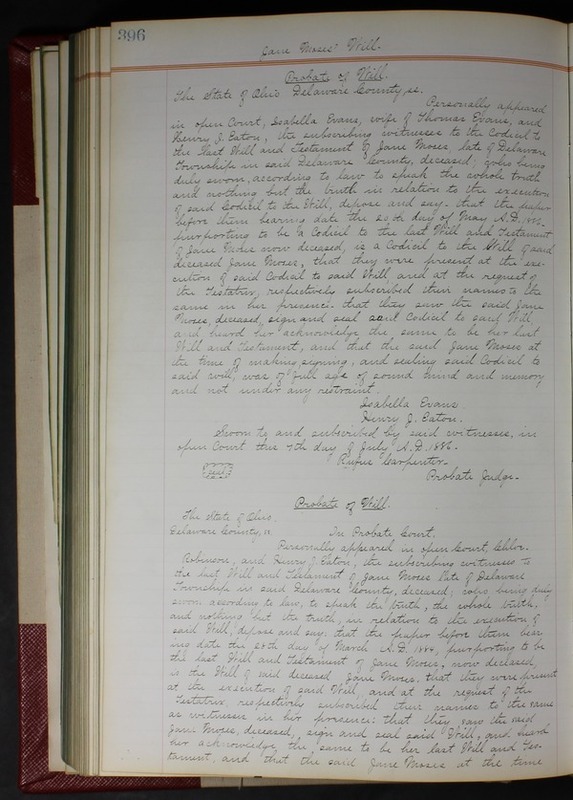 396
Jane Moses' Will.
Probate of Will.
The State of Ohio Delaware County, ss.
Personally appeared
in open Court, Isabella Evans, wife of Thomas Evans, and
Henry J. Eaton, the subscribing witnesses to the Codicil to
the Last Will and Testament of Jane Moses, late of Delaware
Township in said Delaware County, deceased, who being
duly sworn, according to law to speak the whole truth
and nothing but the truth in relation to the execution
of said Codicil to the Will, depose and say: that the paper
before them bearing date the day of May A.D.
purporting to be a Codicil to the last Will and Testament
of Jane Moses now deceased, is a Codicil to the Will of said
deceased Jane Moses, that they were present at the exe-
cution of said Codicil to said Will, and at the request of
the Testatrix, respectively subscribed their names to the
same in her presence: that they saw the said Jane
Moses, deceased, sign and seal said Codicil to said Will
and heard her acknowledge the same to be her last
Will and Testament, and that the said Jane Moses at
the time of making signing, and sealing said Codicil to
said will, was of full age of sound mind and memory
and not under any restraint.
Isabella Evans
Henry J. Eaton.
Sworn to and subscribed by said witnesses, in
open Court this 7th day of July A.D. 1886.
Rufus Carpenter
Seal
Probate Judge.
Probate of Will.
The State of Ohio,
Delaware County, ss. In Probate Court.
Personally appeared in open Court, Chlor.
Robinson, and Henry J. Eaton, the subscribing witnesses to
the last Will and Testament of Jane Moses late of Delaware
Township in said Delaware County, deceased; who, being duly
sworn according to law, to speak the truth, the whole truth,
and nothing but the truth, in relation to the execution of
said Will, depose and say: that the paper before them bear-
ing date the day of March A.D. 1884, purporting to be
the last Will and Testament of Jane Moses, now deceased,
is the Will of said deceased Jane Moses, that they were present
at the execution of said Will, and at the request of the
Testatrix, respectively subscribed their names to the same
as witnesses in her presence: that they saw the said
Jane Moses, deceased, sign and seal said Will, and heard
her acknowledge the same to be her last Will and Tes-
tament, and that the said Jane Moses at the time